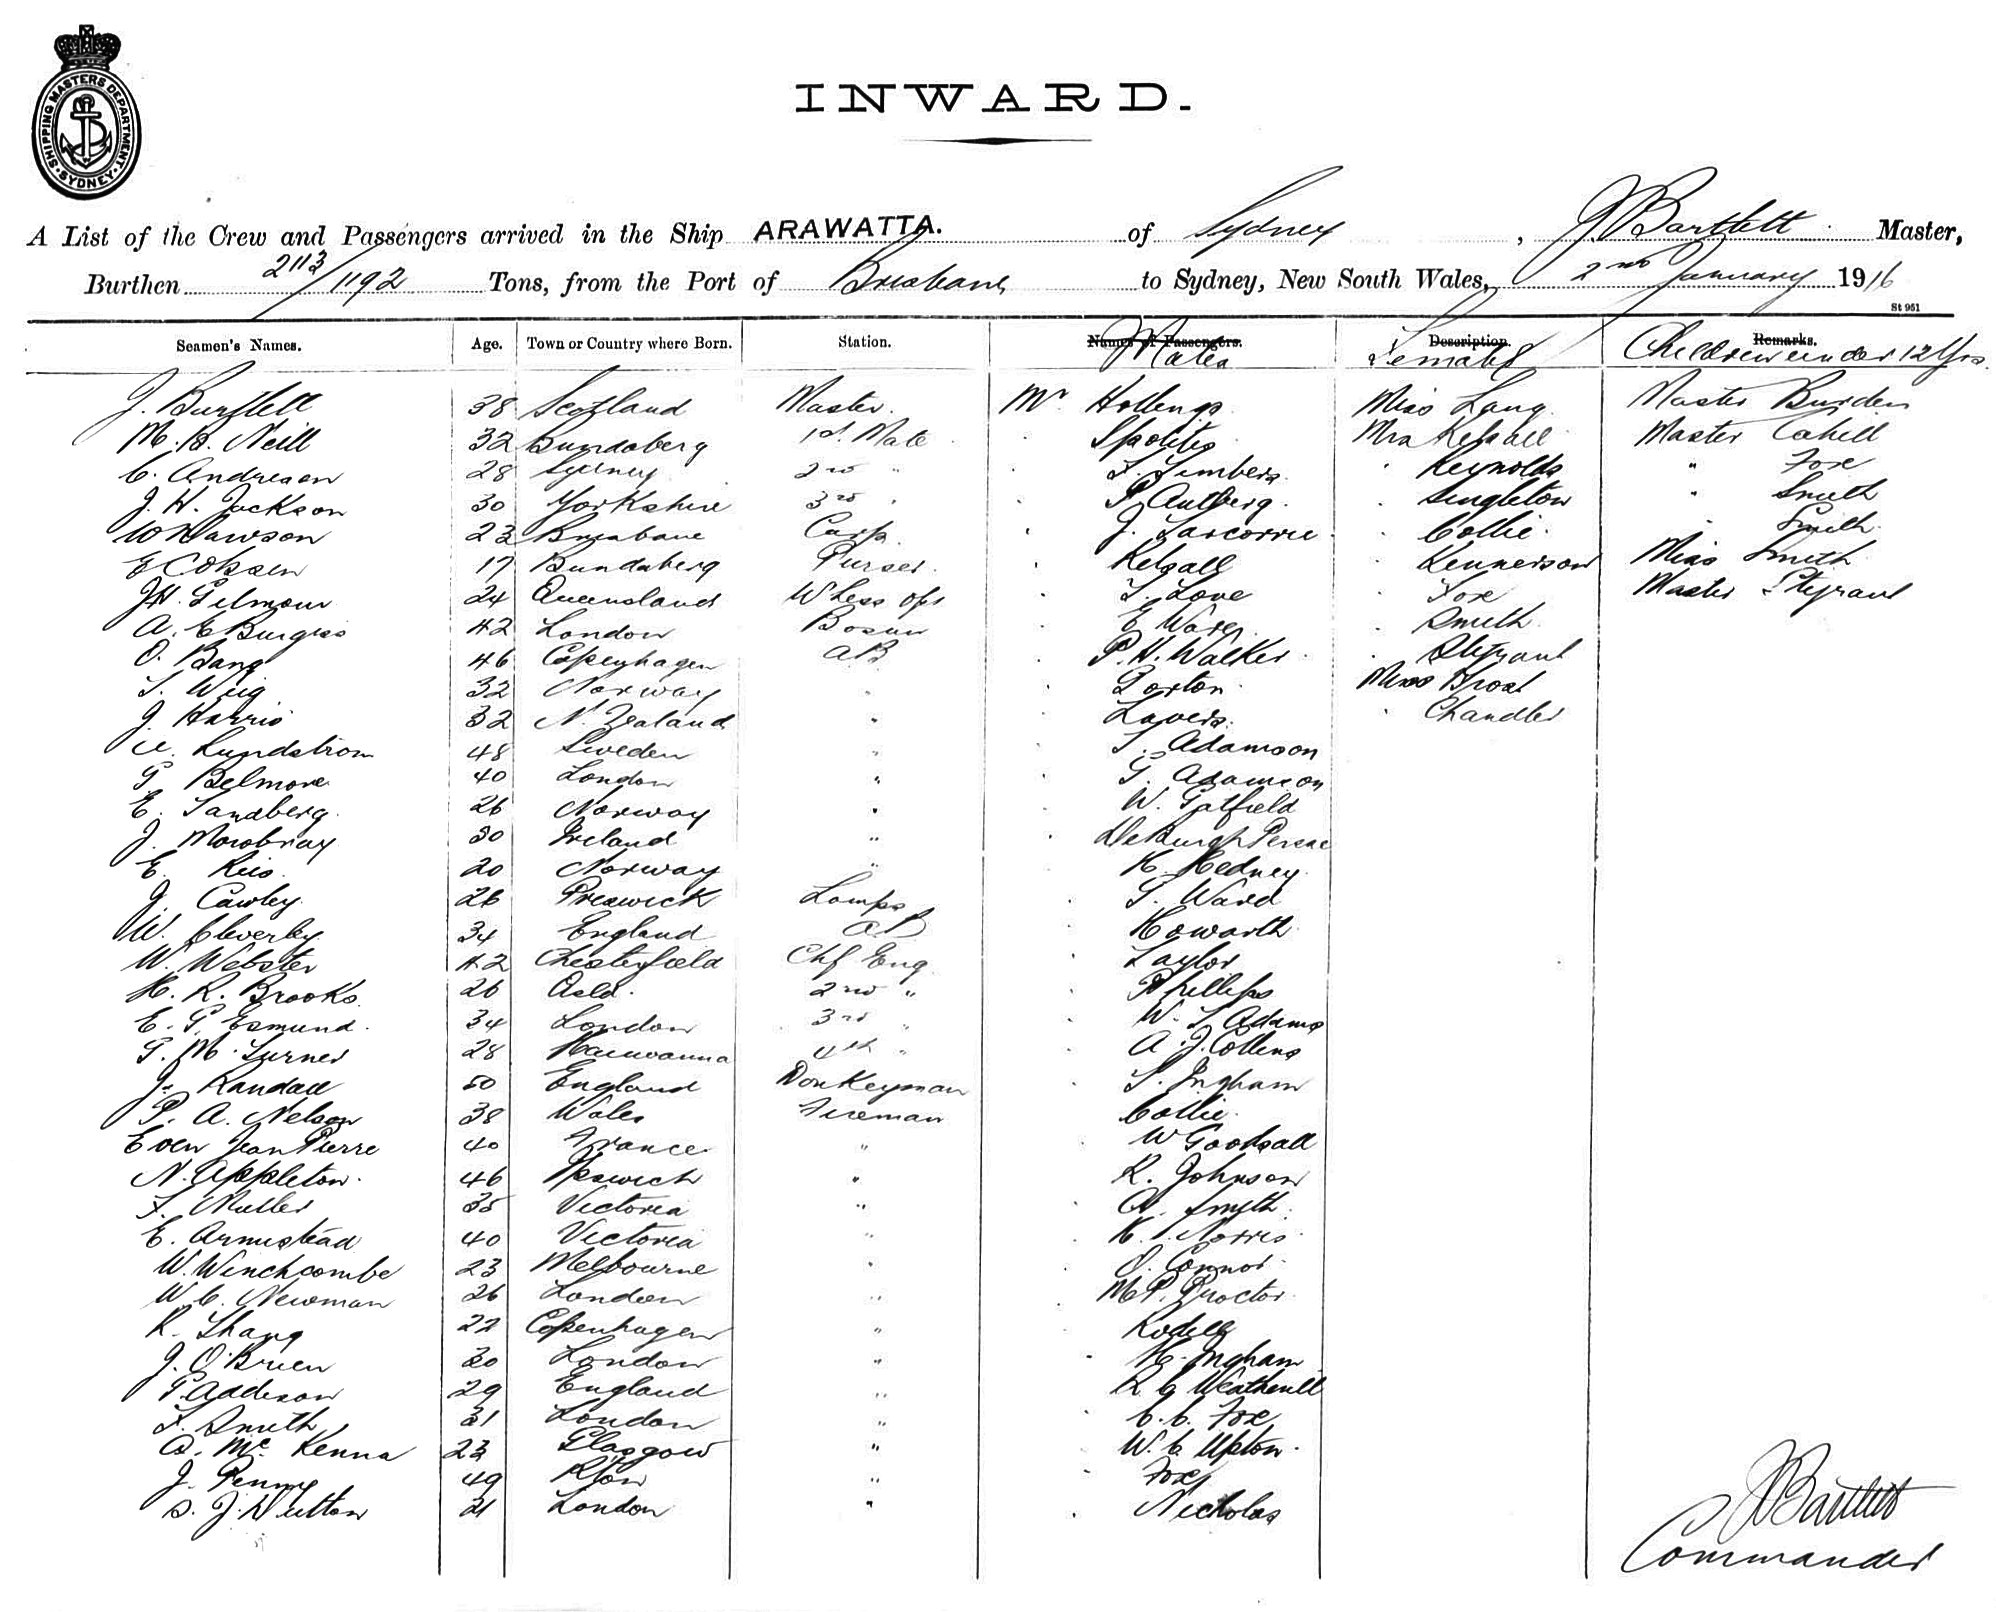 SHIPPING MASTERS DEPARTMENT · SYDNEY ·
INWARD.
A List of the Crew and Passengers arrived in the Ship ARAWATTA. of Sydney, J. Bartlett Master,
Burthen 2113/1192 Tons, from the Port of Brisbane to Sydney, New South Wales, 2nd January 1916
St 951
Seamen's Names. Age. Town or Country where Born. Station. Names of Passengers. Males Description. Females Remarks. Children under 12 Yrs.
J. Bartlett 38 Scotland Master. Mr Hollings Miss Lang Master Burden
M. B. Neill 32 Bundaberg 1st. Mate Mrs Kelsall Master Cahill
C. Andresen 28 Sydney 2nd " Reynolds " Fox
J. H. Jackson 30 Yorkshire 3rd " P. Aulberg. Singleton " Smith
W Lawson 23 Brisbane Carp. J. Collie. Smith
17 Bundaberg Purser. Kelsall Kennerson Miss Smith
JH. Gilmour 24 Queensland W'less Opr T. Love Fox Master Stegrant
A. E Burgess 42 London Bosun E Ware Smith
O. Bang 46 Copenhagen AB P. H. Walker Stegrant
32 Norway " Porton Miss
J. Harris 32 N. Zealand " Lavers. Chandler
A. Lundstrom 48 Sweden " T. Adamson
G. Belmore 40 London " G. Adamson
E. Sandberg 26 Norway " W. Gatfield
J. Mowbray 30 Ireland " De Burgh Persse
E. Reis 20 Norway " H. Hedney
J. Cawley 26 Preswick Lamps T. Ward
W. Cleverley 34 England AB Howarth
W. Webster 42 Chesterfield Chf Eng. Taylor
H. R. Brooks 26 2nd " Phillips
E. G. Esmund 34 London 3rd " W. T. Adams
G. M. Turner 28 4th " A. J. Collins
J. Randall 50 England Donkeyman S. Ingham
P. A. Nelson 38 Wales Fireman Collie.
Even Jean Pierre 40 France " W Goodsall
N. Appleton 46 Ipswich " R. Johnson
F. Muller 35 Victoria " A. Smyth
E. Armistead 40 Victoria " H. Norris
W. Winchcombe 23 Melbourne " O. Connor
W. C. Newman 26 London " M P. Proctor
K. Thang 22 Copenhagen "
J. O'Brien 30 London " H. Ingham
G. Addison 29 England " Weatherill
F. Smith 31 London " C. C. Fox
A. McKenna 23 Glasgow " W. C. Upton
J. Penny 49 " Fox
S. J. Dutton 21 London " Nicholas
J Bartlett
Commander